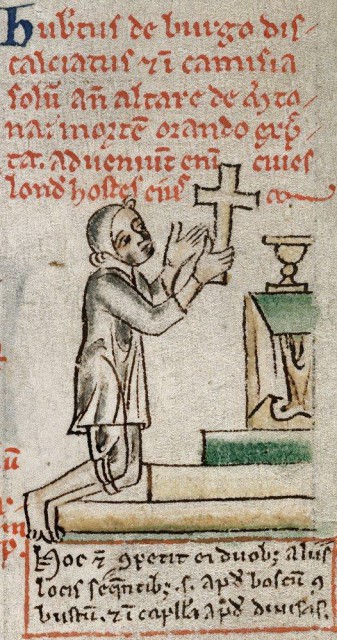 Hubtus de burgo dis
calciatus ⁊ ī camisia
solū añ altare de Mto
na: mortē orando exp
ta. Adueniūt eni ciues
lond hostes eius
Hoc ⁊ 9petit ei duob; aliis
locis seqntib; .s. apd boscū 9
bustū. ⁊ ī capll' apd diuisas.